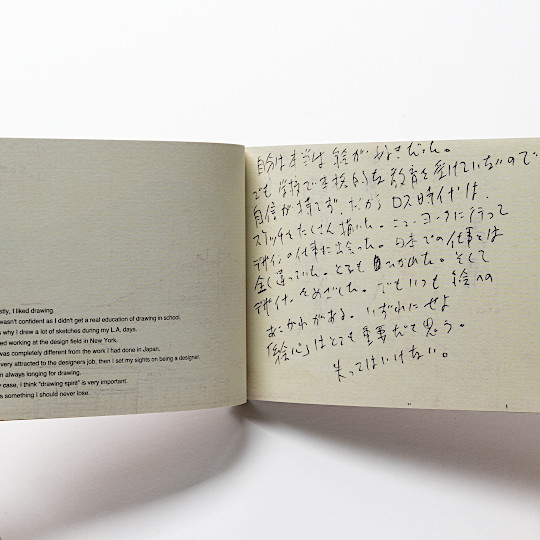 stly, I liked drawing.
wasn't confident as I didn't get a real education of drawing in school.
s why I drew a lot of sketches during my L.A. days.
ed working at the design field in New York.
was completely different from the work I had done in Japan.
very attracted to the designers job, then I set my sights on being a designer.
m always longing for drawing.
y case, I think "drawing spirit" is very important.
s something I should never lose.
自分は本当は絵が好きだった。
でも学校で本格的な教育を受けていないので
自信が持てず、だからロス時代は、
スケッチをたくさん描いた。ニューヨークに行って
デザインの仕事に出会った。日本での仕事とは
全く違っていた。とても
デザインをめざした。でもいつも絵への
あこがれがある。いずれにせよ
「絵心」はとても重要だと思う。
失ってはいけない。